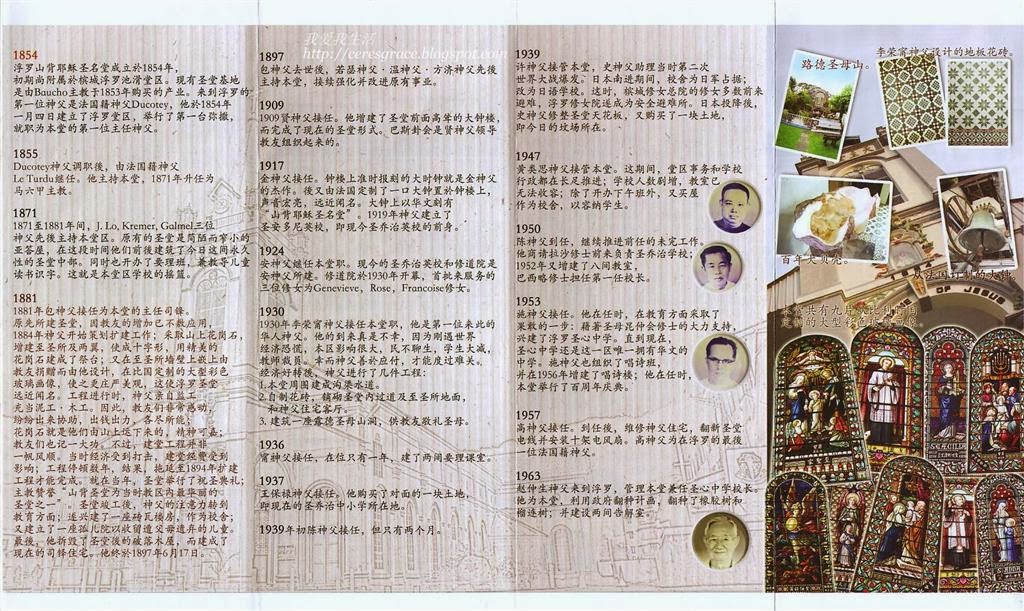 我爱我生活
http://ceresgrace.blogspot.com
1854
浮罗山背耶稣圣名堂成立於1854年，
初期尚附属於槟城浮罗池滑堂区。现有圣堂基地
是由Baucho主教于1853年购买的产业。来到浮罗的
第一位神父是法国籍神父Ducotey，他於1854年
一月四日建立了浮罗堂区，举行了第一台弥撒，
就职为本堂的第一位主任神父。
1855
Ducotey神父调职後，由法国籍神父
Le Turdu继任。他主持本堂，1871年升任为
马六甲主教。
1871
1871至1881年间，J. Lo, Kremer, Galmel三位
神父先後主持本堂区。原有的圣堂是简陋而窄小的
亚答屋，在这段时间他们前後建筑了今日这间永久
性的圣堂中部。同时也开办了要理班，兼教导儿童
读书识字。这就是本堂区学校的摇篮。
1881
1881年包神父接任为本堂的主任司铎。
原先所建圣堂，因教友的增加已不敷应用，
1884年神父开始策划扩建工作；采取山上花岗石，
增建至圣所及两翼，使成十字形，用精美的
花岗石建成了祭台；又在至圣所墙壁上嵌上由
教友捐赠而由他设计，在比国定制的大型彩色
玻璃画像，使之更庄严美观，这使浮罗圣堂
远近闻名。工程进行时，神父亲自监工，
充当泥工·木工。因此，教友们非常感动，
纷纷出来协助，出钱出力，各尽所能；
花岗石就是他们由山上运下来的，精神可嘉；
教友们也记一大功。不过，建堂工程并非
一帆风顺。当时经济受到打击，建堂经费受到
影响；工程停顿数年，结果，拖延至1894年扩建
工程才能完成。就在当年，圣堂举行了祝圣典礼；
主教赞誉“山背圣堂为当时教区内最华丽的
圣堂之一”。圣堂竣工後，神父的注意力转到
教育方面；遂兴建了一座砖瓦楼房，作为校舍；
又建立了一座孤儿院以收留遭父母遗弃的儿童。
最後，他拆毁了圣堂後的破落木屋，而建成了
现在的司铎住宅。他终於1897年6月17日。
1897
包神父去世後，若瑟神父·温神父·方济神父先後
主持本堂，接续强化并改进原有事业。
1909
1909贤神父接任。他增建了圣堂前面高耸的大钟楼，
而完成了现在的圣堂形式。巴斯卦会是贤神父领导
教友组织起来的。
1917
金神父接任。钟楼上准时报刻的大时钟就是金神父
的杰作。後又由法国定制了一口大钟置於钟楼上，
声音宏亮，远近闻名。大钟上以华文刻有
“山背耶稣圣名堂”。1919年神父建立了
圣安多尼英校，即现今圣乔治英校的前身。
1924
安神父继任本堂职。现今的圣乔治英校和修道院是
安神父所建。修道院於1930年开幕，首批来服务的
三位修女为Genevieve，Rose，Francoise修女。
1930
1930年李荣甯神父接任本堂职，他是第一位来此的
华人神父。他的到来真是不幸，因为刚遇世界
经济恐慌，本区影响很大，民不聊生，学生大减，
教师裁员。幸而神父善於应付，才能度过难关。
经济好转後，神父进行了几件工程：
1.本堂周围建成沟渠水道。
2.自制花砖，铺砌圣堂内过道及至圣所地面，
和神父住宅客厅。
3. 建筑一座露德圣母山洞，供教友敬礼圣母。
1936
甯神父接任，在位只有一年，建了两间要理课室。
1937
王保禄神父接任。他购买了对面的一块土地，
即现在的圣乔治中小学所在地。
1939年初陈神父接任，但只有两个月。
1939
许神父接管本堂，史神父助理当时第二次
世界大战爆发。日本南进期间，校舍为日军占据；
改为日语学校。这时，槟城修女总院的修女多数前来
避难，浮罗修女院遂成为安全避难所。日本投降後，
史神父修整圣堂天花板，又购买了一块土地，
即今日的坟场所在。
1947
黄类思神父接管本堂。这期间，堂区事务和学校
行政都在长足推进；学校人数剧增，教室已
无法收容；除了开办下午班外，又买屋
作为校舍，以容纳学生。
1950
陈神父到任，继续推进前任的未完工作。
他商请拉沙修士前来负责圣乔治学校；
1952年又增建了八间教室，
巴西略修士担任第一任校长。
1953
施神父接任。他在任时，在教育方面采取了
果敢的一步：藉著圣母昆仲会修士的大力支持，
兴建了浮罗圣心中学。直到现在，
圣心中学还是这一区唯一拥有华文的
中学。施神父也组织了唱诗班，
并在1956年增建了唱诗楼；他在任时，
本堂举行了百周年庆典。
1957
高神父接任。到任後，维修神父住宅，翻新圣堂
电线并安装十架电风扇。高神父为在浮罗的最後
一位法国籍神父。
1963
赵仲生神父来到浮罗，管理本堂兼任圣心中学校长。
他为本堂，利用政府翻种计画，翻种了橡胶树和
榴莲树；并建设两间告解室。
李荣甯神父设计的地板花砖。
路德圣母山。
百年大贝壳。
从法国订制的大钟。
OF JESUS